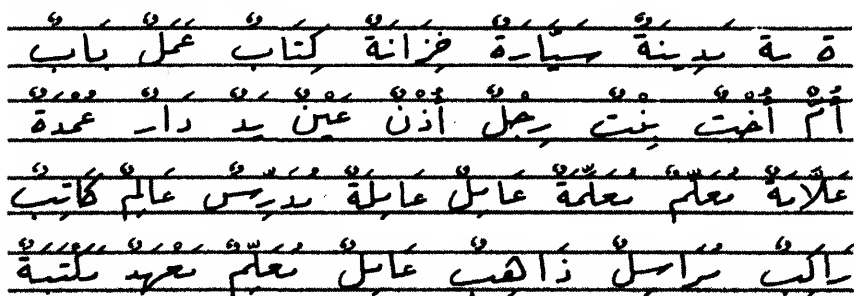 ة ـة مَدِينَةٌ سَيَّارَةٌ خِزَانَةٌ كِتَابٌ عَمَلٌ بَابٌ
أُمٌّ أُخْتٌ بِنْتٌ رِجْلٌ أُذُنٌ عَيْنٌ يَدٌ دَارٌ عُمْدَةٌ
عَلَّامَةٌ مُعَلِّمٌ مُعَلِّمَةٌ عَامِلٌ عَامِلَةٌ مُدَرِّسٌ عَالِمٌ كَاتِبٌ
رَاكِبٌ مُرَاسِلٌ ذَاهِبٌ عَامِلٌ مُعَلِّمٌ مَعْهَدٌ مَكْتَبَةٌ